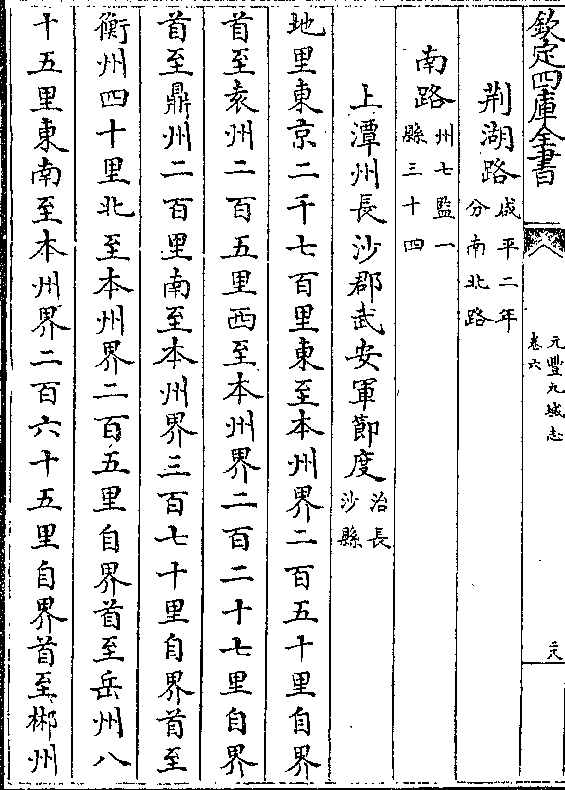 欽定四庫全書
元豐九域志
卷六
荆湖路咸平二年
分南北路
南路州七監一
縣三十四
上潭州長沙郡武安軍節度治長
沙縣
地里東京二千七百里東至本州界二百五十里自界
首至袁州二百五里西至本州界二百二十七里自界
首至鼎州二百里南至本州界三百七十里自界首至
衡州四十里北至本州界二百五里自界首至岳州八
十五里東南至本州界二百六十五里自界首至郴州